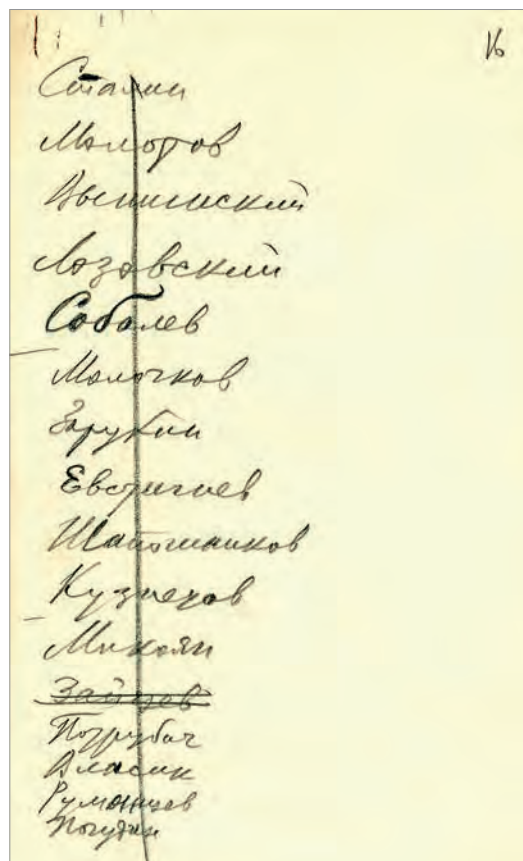 16
Сталин
Молотов
Вышинский
Лозовский
Соболев
Молочков
Зарубин
Евстигнев
Шапошников
Кузнецов
Микоян
Зайцев
Подрубач
Власик
Румянцев